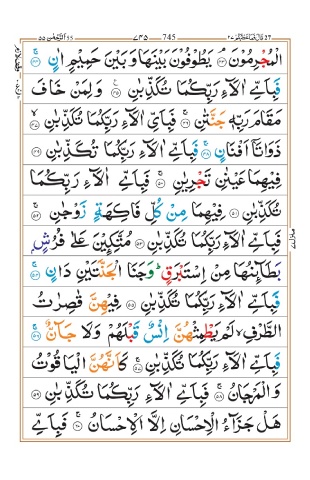 745
الْمُجْرِمُوْنَ ۘ ۴۳ يَطُوْفُوْنَ بَيْنَهَا وَبَيْنَ حَمِيْمٍ اٰنٍ ۚ ۴۴
فَبِاَيِّ اٰلَآءِ رَبِّكُمَا تُكَذِّبٰنِ ۴۵ وَلِمَنْ خَافَ
مَقَامَ رَبِّهٖ جَنَّتٰنِ ۚ ۴۶ فَبِاَيِّ اٰلَآءِ رَبِّكُمَا تُكَذِّبٰنِ ۙ ۴۷
ذَوَاتَآ اَفْنَانٍ ۚ ۴۸ فَبِاَيِّ اٰلَآءِ رَبِّكُمَا تُكَذِّبٰنِ ۴۹
فِيْهِمَا عَيْنٰنِ تَجْرِيٰنِ ۚ ۵۰ فَبِاَيِّ اٰلَآءِ رَبِّكُمَا
تُكَذِّبٰنِ ۵۱ فِيْهِمَا مِنْ كُلِّ فَاكِهَةٍ زَوْجٰنِ ۚ ۵۲
فَبِاَيِّ اٰلَآءِ رَبِّكُمَا تُكَذِّبٰنِ ۵۳ مُتَّكِـِٕيْنَ عَلٰى فُرُشٍۭ
بَطَآىِٕنُهَا مِنْ اِسْتَبْرَقٍ ؕ وَجَنَا الْجَنَّتَيْنِ دَانٍ ۚ ۵۴
فَبِاَيِّ اٰلَآءِ رَبِّكُمَا تُكَذِّبٰنِ ۵۵ فِيْهِنَّ قٰصِرٰتُ
الطَّرْفِ ۙ لَمْ يَطْمِثْهُنَّ اِنْسٌ قَبْلَهُمْ وَلَا جَآنٌّ ۚ ۵۶
فَبِاَيِّ اٰلَآءِ رَبِّكُمَا تُكَذِّبٰنِ ۚ ۵۷ كَاَنَّهُنَّ الْيَاقُوْتُ
وَالْمَرْجَانُ ۚ ۵۸ فَبِاَيِّ اٰلَآءِ رَبِّكُمَا تُكَذِّبٰنِ ۵۹
هَلْ جَزَآءُ الْاِحْسَانِ اِلَّا الْاِحْسَانُ ۚ ۶۰ فَبِاَيِّ